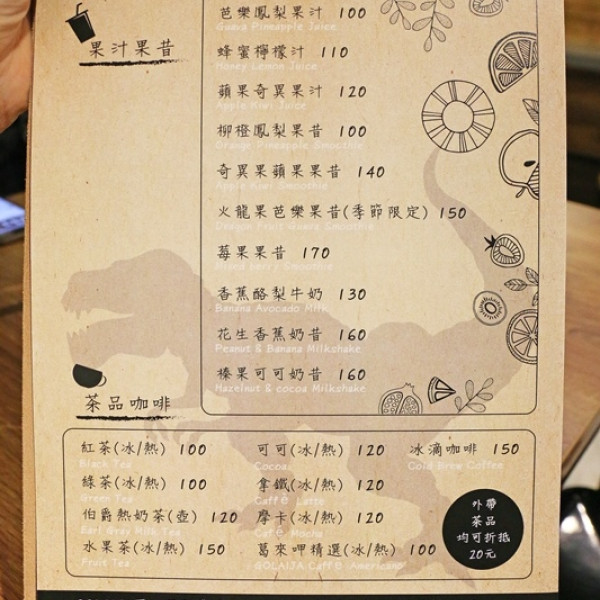 果汁果昔
芭樂鳳梨果汁 100
Guava Pineapple Juice
蜂蜜檸檬汁 110
Honey Lemon Juice
蘋果奇異果汁 120
Apple Kiwi Juice
柳橙鳳梨果昔 100
Orange Pineapple Smoothie
奇異果蘋果果昔 140
Apple Kiwi Smoothie
火龍果芭樂果昔(季節限定) 150
Dragon Fruit Guava Smoothie
莓果果昔 170
香蕉酪梨牛奶 130
Banana Avocado Milk
花生香蕉奶昔 160
Peanut & Banana Milkshake
榛果可可奶昔 160
Hazelnut & cocoa Milkshake
茶品咖啡
紅茶(冰/熱) 100
Black Tea
綠茶(冰/熱) 100
Green Tea
伯爵熱奶茶(壺) 120
Earl Gray Milk Tea
水果茶(冰/熱) 150
Fruit Tea
可可(冰/熱) 120
Cocoa
拿鐵(冰/熱) 120
Caffé Latte
摩卡(冰/熱) 120
Café Mocha
葛來呷精選(冰/熱) 100
GOLAIJA Caffé Americano
冰滴咖啡 150
Cold Brew Coffee
外帶
茶品
均可折抵
20元